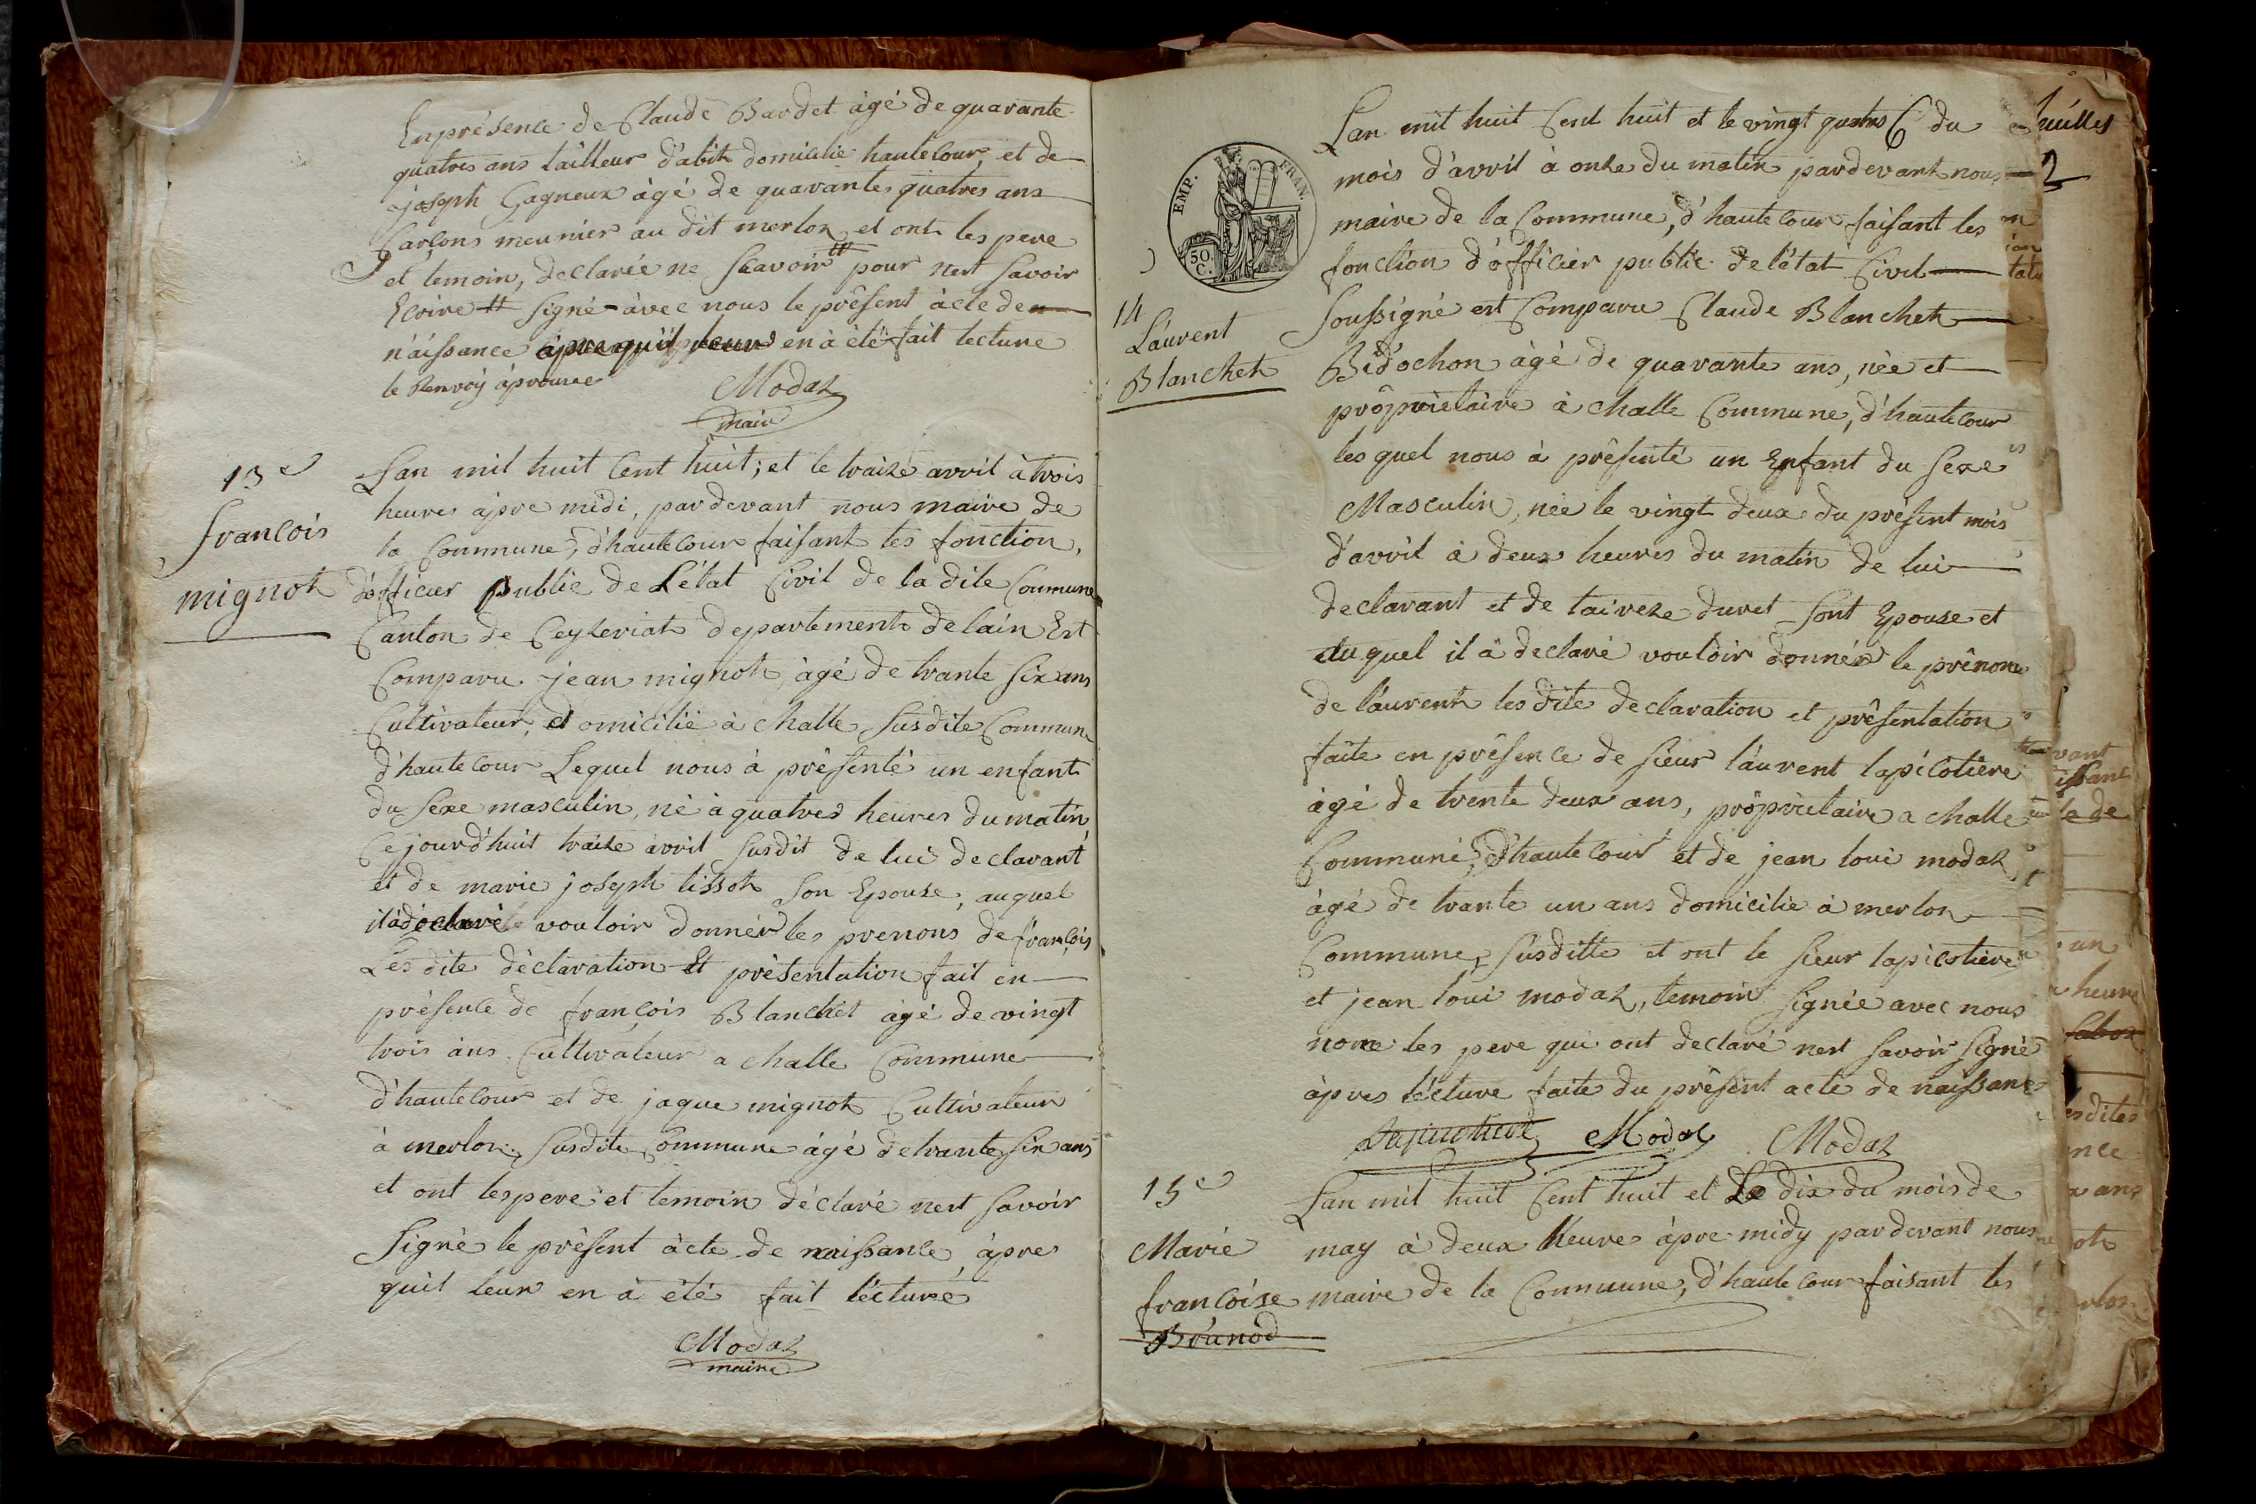 Enprésence de Claude Bardet àgé de quarante
quatres ans tailleur d'abit domicilié hautecour, et de
joseph Gagneux àgé de quarantes quatres ans
Garçons meunier au dit merloz et ont les pere
et temoin, declarée ne Scavoir # pour nest savoir
Ecrire # signé avec nous le présent àcte de
n'aissance àpre quil leur en à été fait lecture
le Renvoÿ àprouvee
Modaz
maire
13e
françois
mignot
Lan mil huit Cent huit; et le traize avril à trois
heures àpre midi, pardevant nous maire de
la Commune, d'hautecour faisant les fonction,
d'officier Public de L'état Civil de la dite Commune
Canton de Ceyzeriat departement de lain Est
Comparu jean mignot, àgé de trante six ans
Cultivateur, domicilié à Challe susdite Commune
d'hautecour Lequel nous à présenté un enfant
du sexe masculin, né à quatres heures du matin
Cejourd'huit traize avril susdit de lui declarant
et de marie joseph tissot son Epouse, auquel
il à declaré vouloir donnér les prenons de françois
Les dite déclaration Et présentation fait en
présence de françois Blanchet àgé de vingt
trois àns Cultivateur a Challe Commune
d'hautecour et de jaque mignot Cultivateur
à merloz, susdite Commune àgé de trante six ans
et ont lespere et temoin déclaré nest savoir
Signé le présent àcte de naissance, àpre
quit leur en à été fait lécture
Modaz
maire
Lan mil huit Cent huit et le vingt quatres du
mois d'avril à onze du matin pardevant nous
maire de la Commune, d'hautecour faisant les
fonction d'officier public de létat Civil
EMP. FRAN.
50. C.
14
Láurent
Blanchet
Soussigné est Comparu Claude Blanchet
Bidochon àgé de quarante ans, née et
proprietaire à Challe Commune, d'hautecour
les quel nous à présenté un Enfant du sexe
Masculin, née le vingt deux du présent mois
d'avril à deux heures du matin de lui
declarant et de taireze duret sont Epouse et
duquel il à declaré vouloir donnér le prénom
de láurent les dite declaration et présentation
faite en présence de sieur láurent lapicotiere
àgé de trente deux ans, propriétaire a Challe
Commune, d'hautecour et de jean loui modaz
àgé de trante un ans domicilié à merloz
Commune, susditte et ont le sieur lapicotiere
et jean loui modaz, temoin signée avec nous
none les pere qui ont declaré nest savoir signé
àpres lécture faite du présent acte de naissance
Lapicotiere Modaz Modaz
15e
Marie
françoise
Brunod
Lan mil huit Cent huit et Le dix du mois de
may à deux heure àpre midy pardevant nous
maire de la Commune, d'hautecour faisant les
2